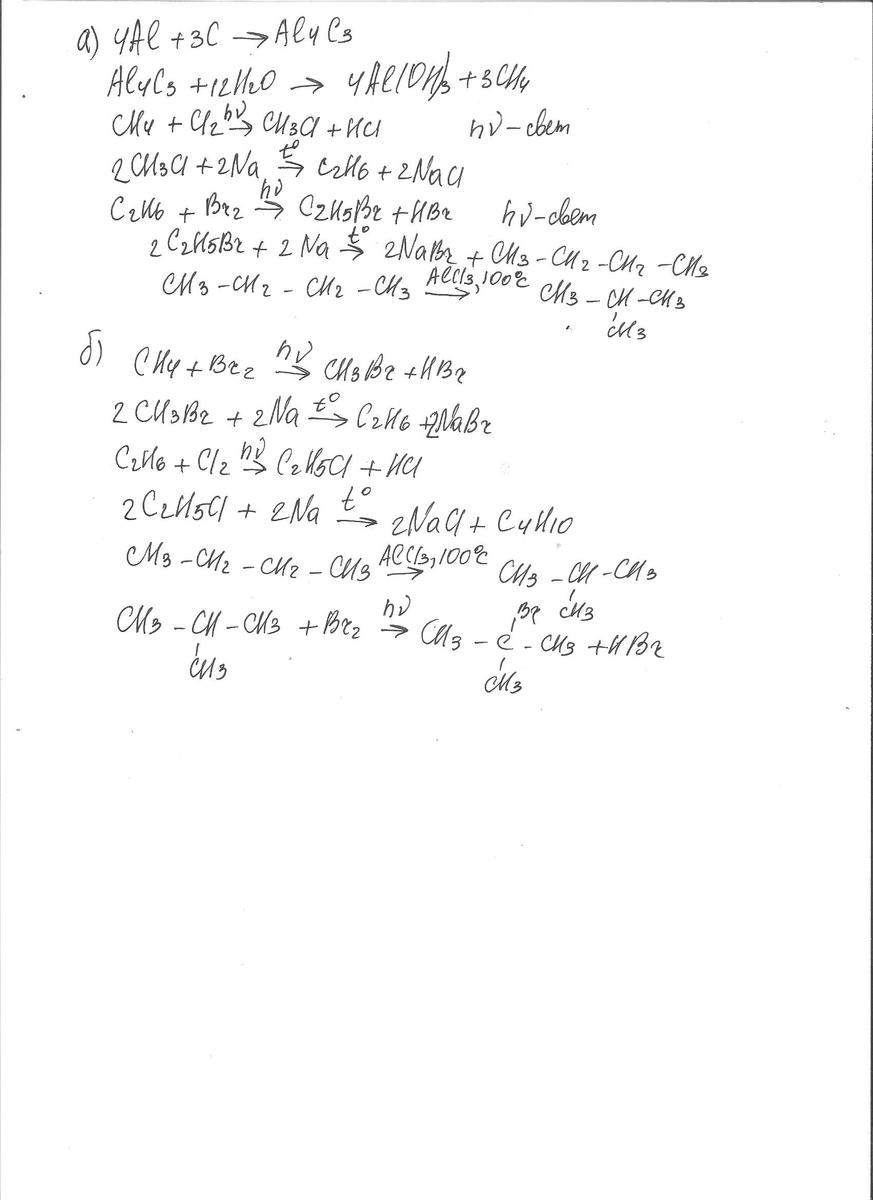 а) 4Al + 3C → Al4C3
Al4C3 + 12H2O → 4Al(OH)3 + 3CH4
CH4 + Cl2 hν→ CH3Cl + HCl hν – свет
2CH3Cl + 2Na t°→ C2H6 + 2NaCl
C2H6 + Br2 hν→ C2H5Br + HBr hν – свет
2C2H5Br + 2Na t°→ 2NaBr + CH3 – CH2 – CH2 – CH3
CH3 – CH2 – CH2 – CH3 AlCl3, 100°C→ CH3 – CH – CH3
CH3
б) CH4 + Br2 hν→ CH3Br + HBr
2CH3Br + 2Na t°→ C2H6 + 2NaBr
C2H6 + Cl2 hν→ C2H5Cl + HCl
2C2H5Cl + 2Na t°→ 2NaCl + C4H10
CH3 – CH2 – CH2 – CH3 AlCl3, 100°C→ CH3 – CH – CH3
CH3
Br
CH3 – CH – CH3 + Br2 hν→ CH3 – C – CH3 + HBr
CH3 CH3